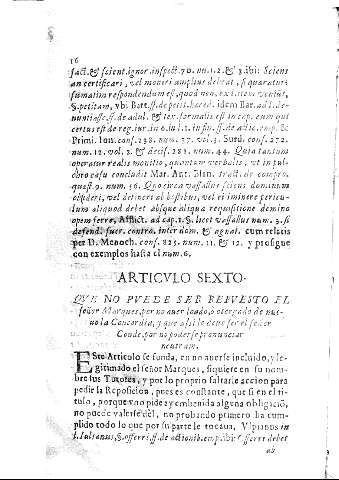 16
fact. & scient. ignor. inspect. 70. num. 1. 2. & 3. ibi: Sciens
an certificari, vel moneri amplius debeat, si quæratur:
summatim respondendum est, quod non, ex item venit,
§. petitam, vbi Bart. ff. de petit. hæred. idem Bar. ad l. de-
nuntiasse ff. de adul. & ter. formalis est in cap. eum qui
certus est de reg. iur. in 6. in l. 1. in fin. ff. de actio. emp. &
Primi. Ion. conf. 138. num. 37. vol. 3. Surd. conf. 272.
num. 12. vol. 2. & decis. 288. num. 44. Quia tantum
operatur realis monitio, quantum verbalis, vt in pul-
chro casu concludit Mar. Ant. Blan. tract. de compro.
quest. 9. num. 36. Quo circa vassallus sciens dominum
obsideri, vel detineri ab hostibus, vel ei iminere pericu-
lum aliquod debet absque aliqua requisitione domino
opem ferre, Afflict. ad cap. 1. §. licet vassallus num. 3. si
defend. fuer. contro. inter dom. & agnat. cum relatis
per D. Menoch. conf. 825. num. 11. & 12. y prosigue
con exemplos hasta el num. 6.
ARTICVLO SEXTO.
QVE NO PVEDE SER REPVESTO EL
señor Marques, por no auer loado, ò otorgado de nue-
uo la Concordia, y que assi lo deue ser el señor
Conde, por no poderse pronunciar
neutram.
ESte Articulo se funda, en no auerse incluido, y le-
gitimado el señor Marques, siquiere en su nom-
bre sus Tutores, y por lo proprio faltarle accion para
pedir la Reposicion, pues es constante, que si en el ti-
tulo, porque vno pide ay embeuida alguna obligaciō,
no puede valerse dèl, no probando primero ha cum-
plido todo lo que por su parte le tocaua, Vlpianus in
l. Iulianus, §. offerri, ff. de actionib. emp. ibi: Offerri debet